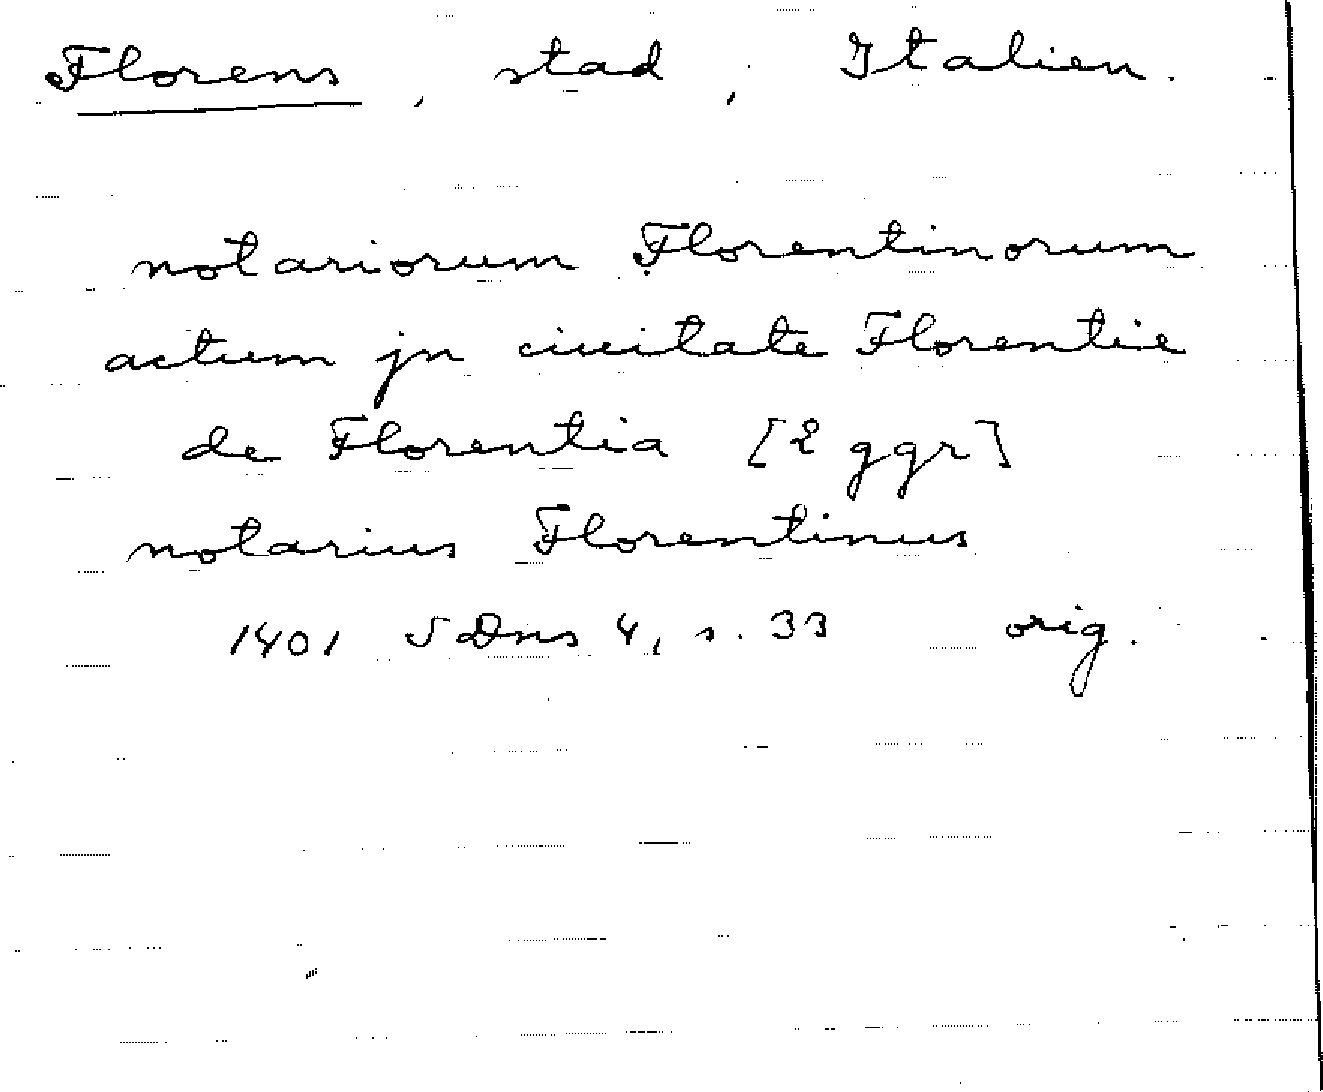 Florens, stad, Italien.
notariorum Florentinorum
actum jn ciuitate Florentie
de Florentia [2 ggr]
notarius Florentinus
1401 SDns 4, s. 33 orig.